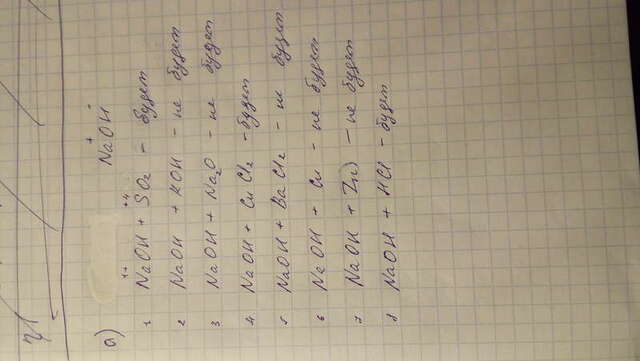 а)
NaOH
1 NaOH + SO2 - будет
2 NaOH + KOH - не будет
3 NaOH + Na2O - не будет
4 NaOH + CuCl2 - будет
5 NaOH + BaCl2 - не будет
6 NaOH + Cu - не будет
7 NaOH + Zn) - не будет
8 NaOH + HCl - будет